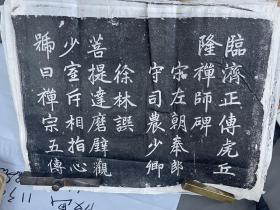 臨濟正傳虎丘
隆禪師碑
宋左朝奉郎
守司農少卿
徐林譔
菩提達磨壁觀
少室斥相指心
號曰禪宗五傳